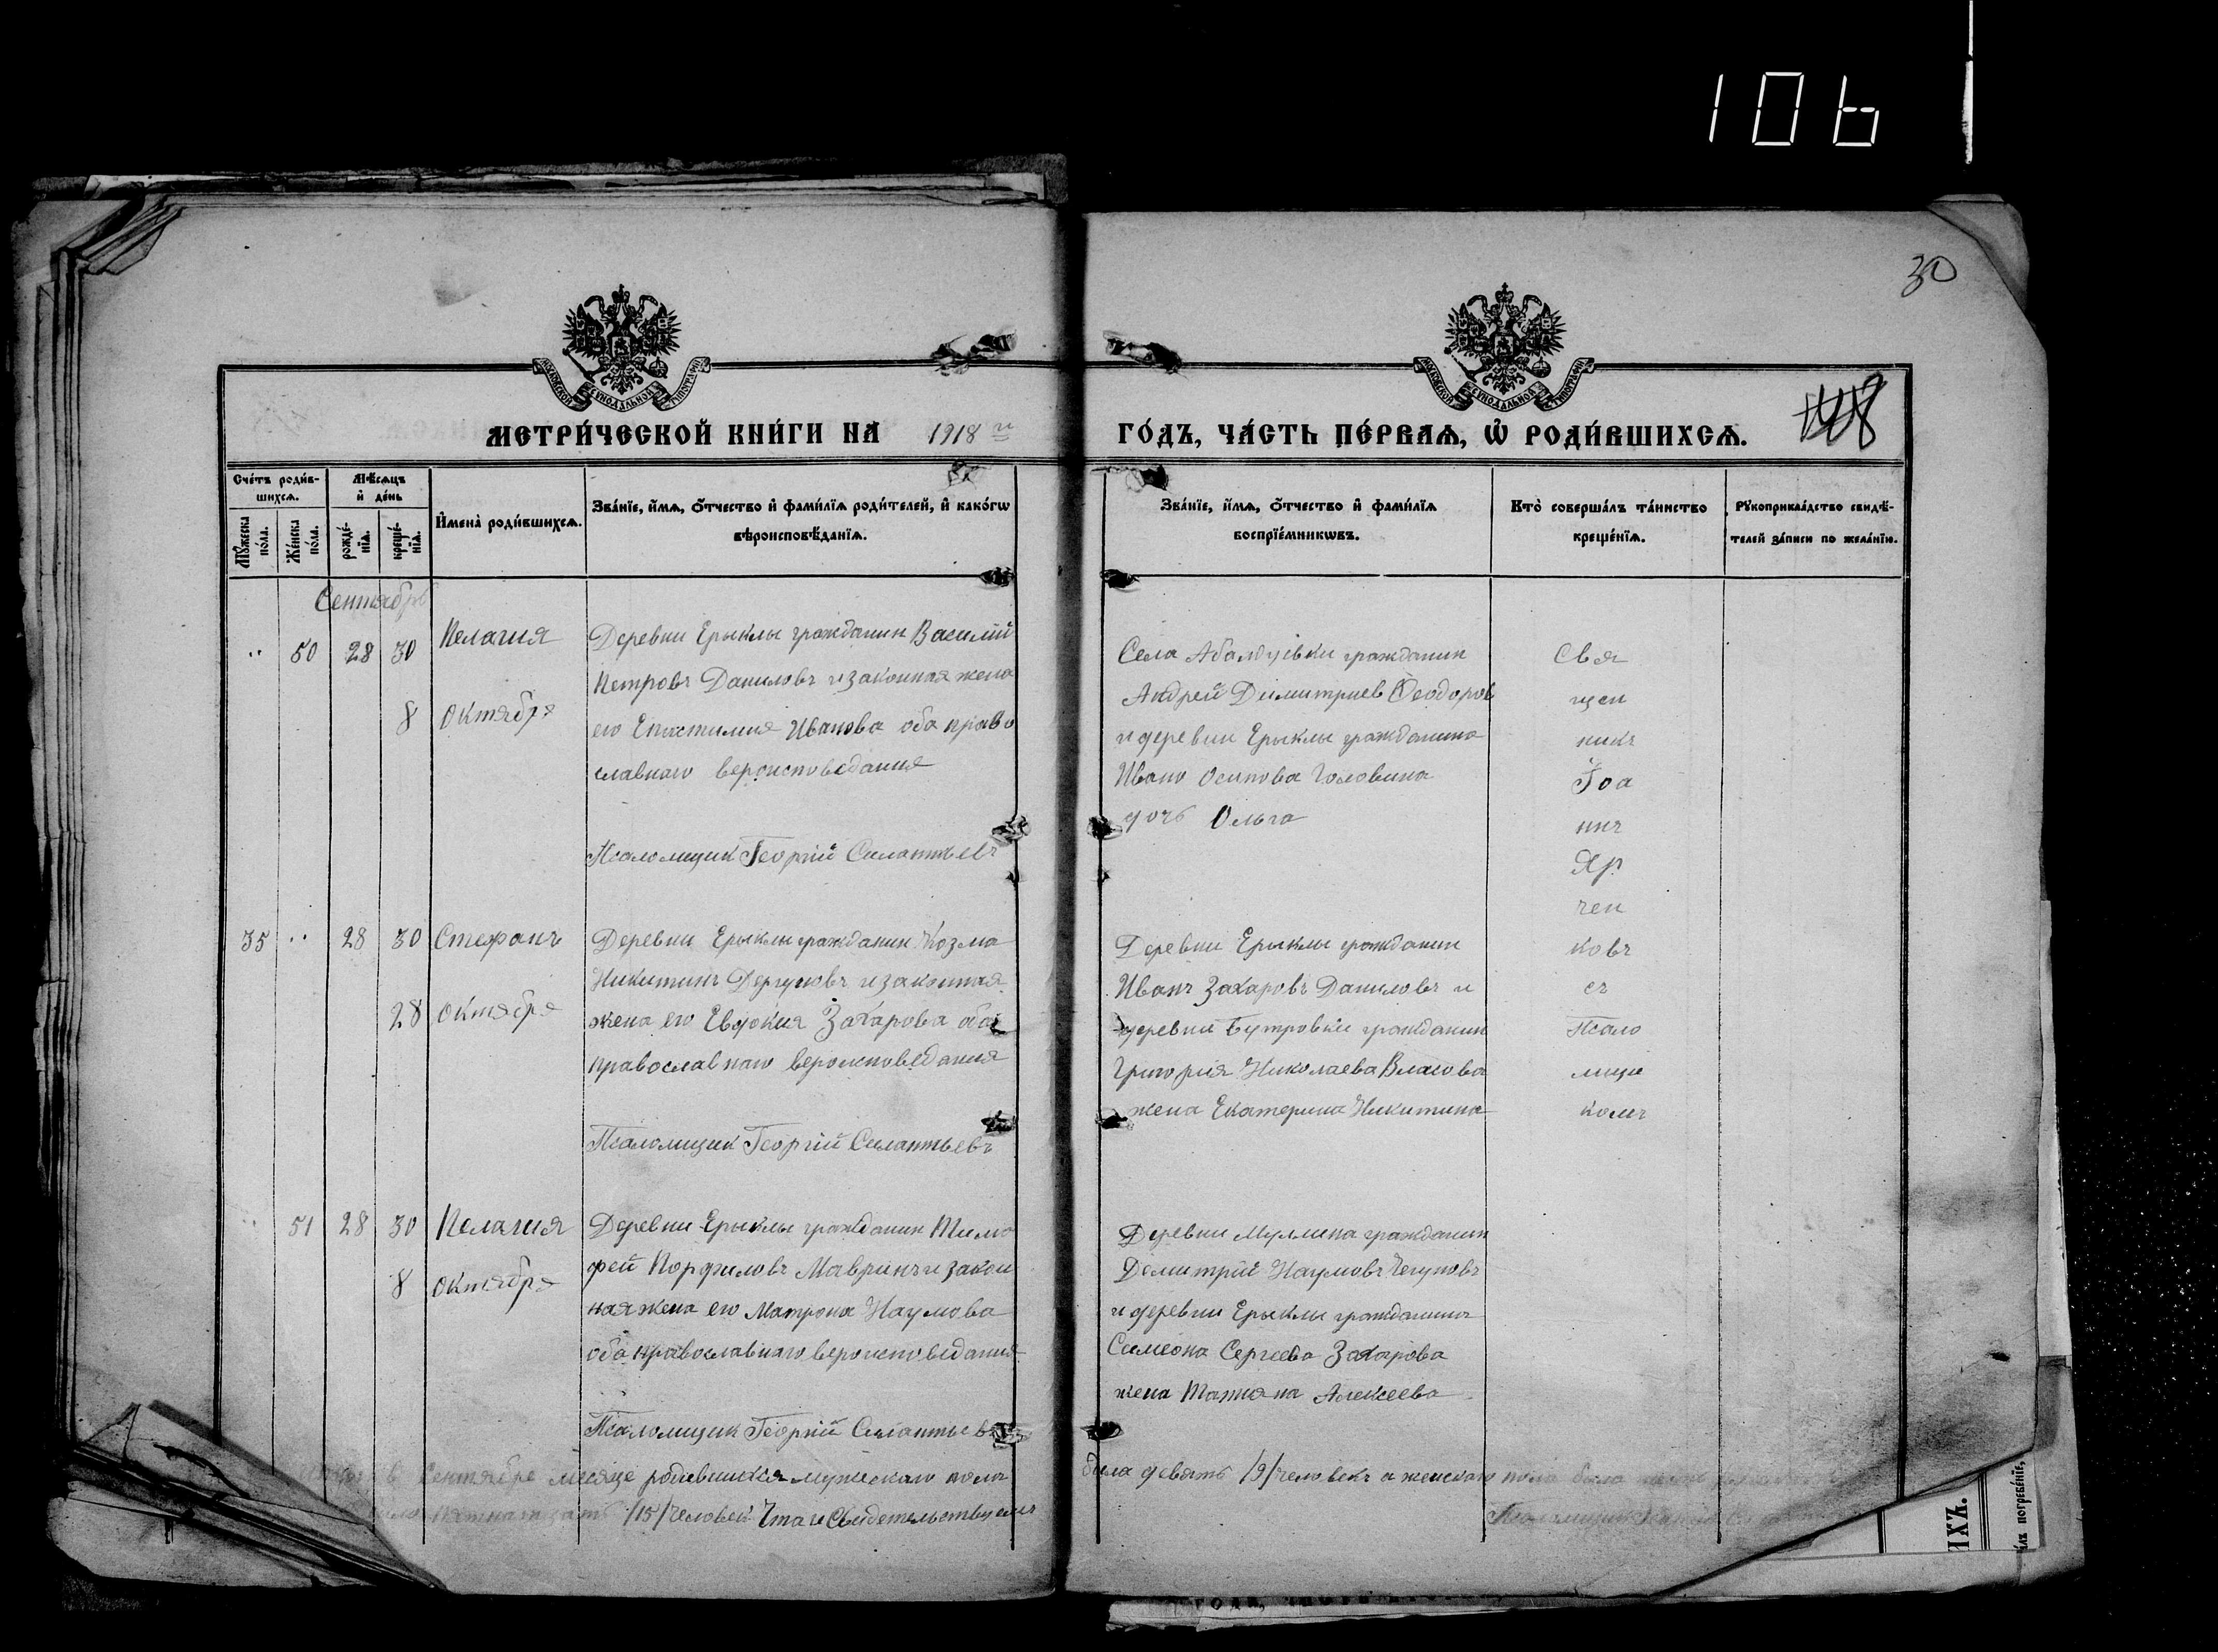 106
30
МОСКОВСКОЙ СѴНОДАЛЬНОЙ ТИПОГРАФІИ
МОСКОВСКОЙ СѴНОДАЛЬНОЙ ТИПОГРАФІИ
МЕТРИ́ЧЕСКОЙ КНИ́ГИ НА 1918 й
ГО́ДЪ, ЧА́СТЬ ПЕ́РВАѦ, Ѡ҆ РОДИ́ВШИХСѦ.
Сче́тъ роди́в-
шихсѧ.
Мѣ́сѧцъ
и҆ де́нь
Мꙋ́жеска
по́ла.
Же́нска
по́ла.
рожде́-
нїѧ.
креще́-
нїѧ.
И҆мена̀ роди́вшихсѧ.
Зва́нїе, и҆́мѧ, ѻ҆́тчество и҆ фами́лїѧ роди́телей, и҆ како́гѡ
вѣроисповѣ́данїѧ.
Зва́нїе, и҆́мѧ, ѻ҆́тчество и҆ фами́лїѧ
воспрїе́мникѡвъ.
Кто̀ соверша́лъ та́инство
креще́нїѧ.
Рꙋкоприкла́дство свидѣ́-
телей за́писи по жела́нїю.
Сентябрь
50 28 30 Пелагия
8 Октября
Деревни Ерыклы гражданин Василий
Петровъ Даниловъ и законная жена
его Епистимия Иванова оба право
славнаго вероисповедания
Псаломщик Георгій Силантьевъ
Села Абалдуевки гражданин
Андрей Димитриев Феодоров
и деревни Ерыклы гражданина
Ивана Осипова Головина
дочь Ольга
Свя
щен
никъ
Іоа
ннъ
Яр
чен
ковъ
съ
Псало
мщи
комъ
35 28 30 Стефанъ
28 Октября
Деревни Ерыклы гражданин Козма
Никитинъ Дергуновъ и законная
жена его Евдокия Захарова оба
православнаго вероисповедания
Псаломщик Георгій Силантьевъ
Деревни Ерыклы гражданин
Иванъ Захаровъ Даниловъ и
деревни Бутровки гражданин
Григория Николаева Власова
жена Екатерина Никитина
51 28 30 Пелагия
8 Октября
Деревни Ерыклы гражданин Тимо
фей Порфиловъ Мавринъ и закон
ная жена его Матрона Наумова
оба православнаго вероисповедания
Псаломщик Георгій Силантьев
Деревни Муллина гражданин
Димитрий Наумовъ Чегуновъ
и деревни Ерыклы гражданина
Симеона Сергеева Захарова
жена Татияна Алексеева
в Сентябре месяце родившихся мужескаго пола
было девять /9/ человекъ а женскаго пола было
пятнатцать /15/ человек Что и Свидетельствуемъ
Псаломщик
ИХЪ.
погребе́нїе,